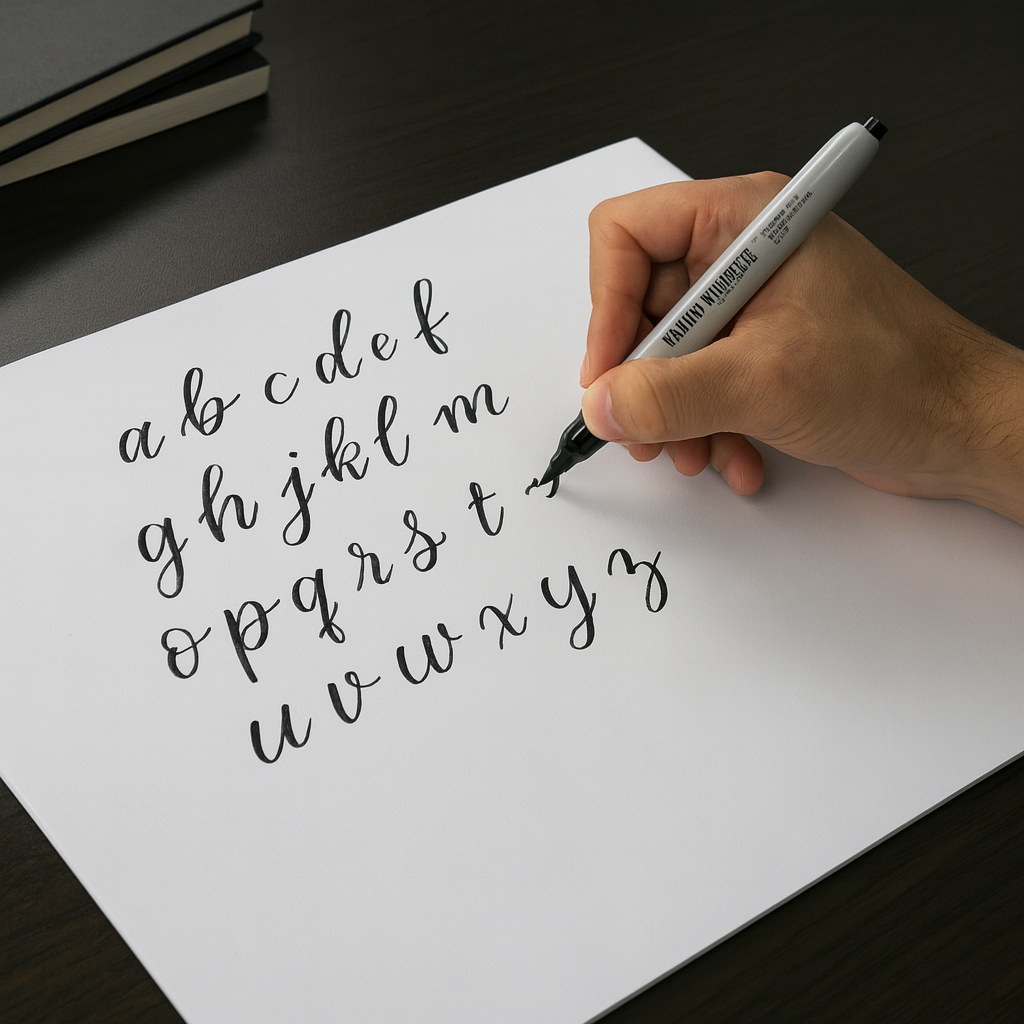 a b c d e f
g h j k l m
o p q r s t
u v w x y z